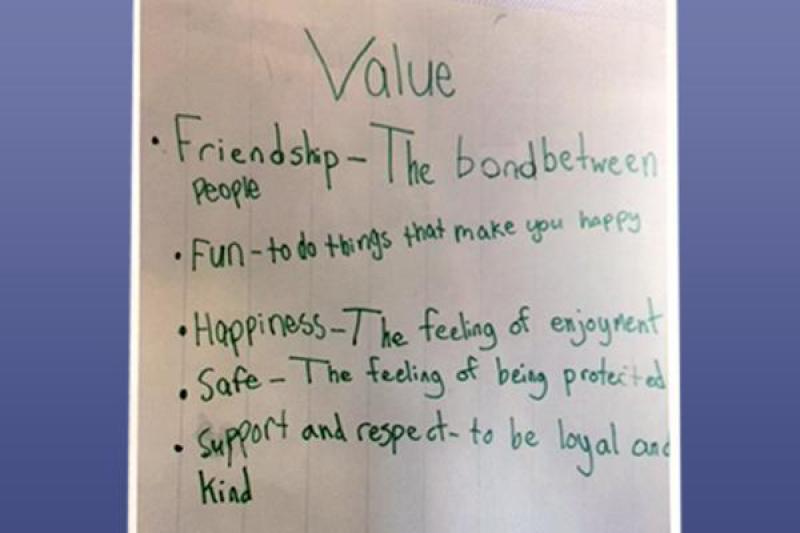 Value
• Friendship - The bond between
People
• Fun - to do things that make you happy
• Happiness - The feeling of enjoyment
• Safe - The feeling of being protected
• Support and respect - to be loyal and
kind